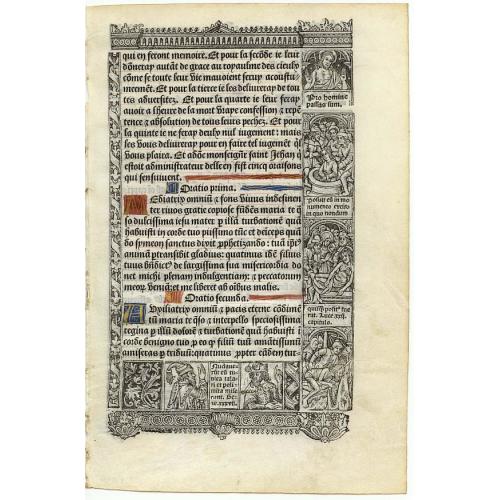 qui en feront memoire. Et pour la secõde ie leur
dõneray autãt de grace au royaulme des cieulx
cõme se toute leur vie mauoient seruy acoustu-
meemẽt. Et pour la tierce ie les deliureray de tou
tes aduersitez. Et pour la quarte ie leur feray
auoir a lheure de la mort vraye confession z repẽ
tence z absolution de tous leurs pechez. Et pour
la quinte ie ne feray deulx nul iugement: mais
les vous deliureray pour en faire tel iugemẽt ql
vous plaira. Et adõc monseigñr saint Jehan q
estoit administrateur delle en fist cinq oraisons
qui sensuiuent.
Oratio prima.
Mediatrix omniũ z fons viuus indefinen
ter riuos gratie copiose fũdẽs maria te q̃
so dulcissima iesu mater p illã turbationẽ quã
habuisti in corde tuo piissimo tũc et deiceps quã
do symeon sanctus dixit prophetizando: tuã ip̃i⁹
animã ptransibit gladius: quatinus idẽ filius
tuus bñdict⁹ de largissima sua misericordia do
net michi plenam indulgentiam: z peccatorum
meoꝝ veniã: et me liberet ab oĩbus malis.
Oratio secunda.
Auxiliatrix omniũ z pacis eterne cõditiẽ
tũ maria te q̃so z interpello speciosissima
regina p illũ dolorẽ z turbationẽ quã habuisti
corde benigno tuo p eo q filiũ tuũ amantissimũ
amiseras p triduũ: quatinus ppter eãdem tur-
Pro homine
passus sum.
Posuit eũ in mo
numento exciso
in quo nondum
quisq̃ posit⁹ fue
rat. Luce .xxij.
capitulo.
Nudaue-
rũt eũ
tunica tala-
ri et poli-
mita mise-
rant. Ge.
xxxvij.